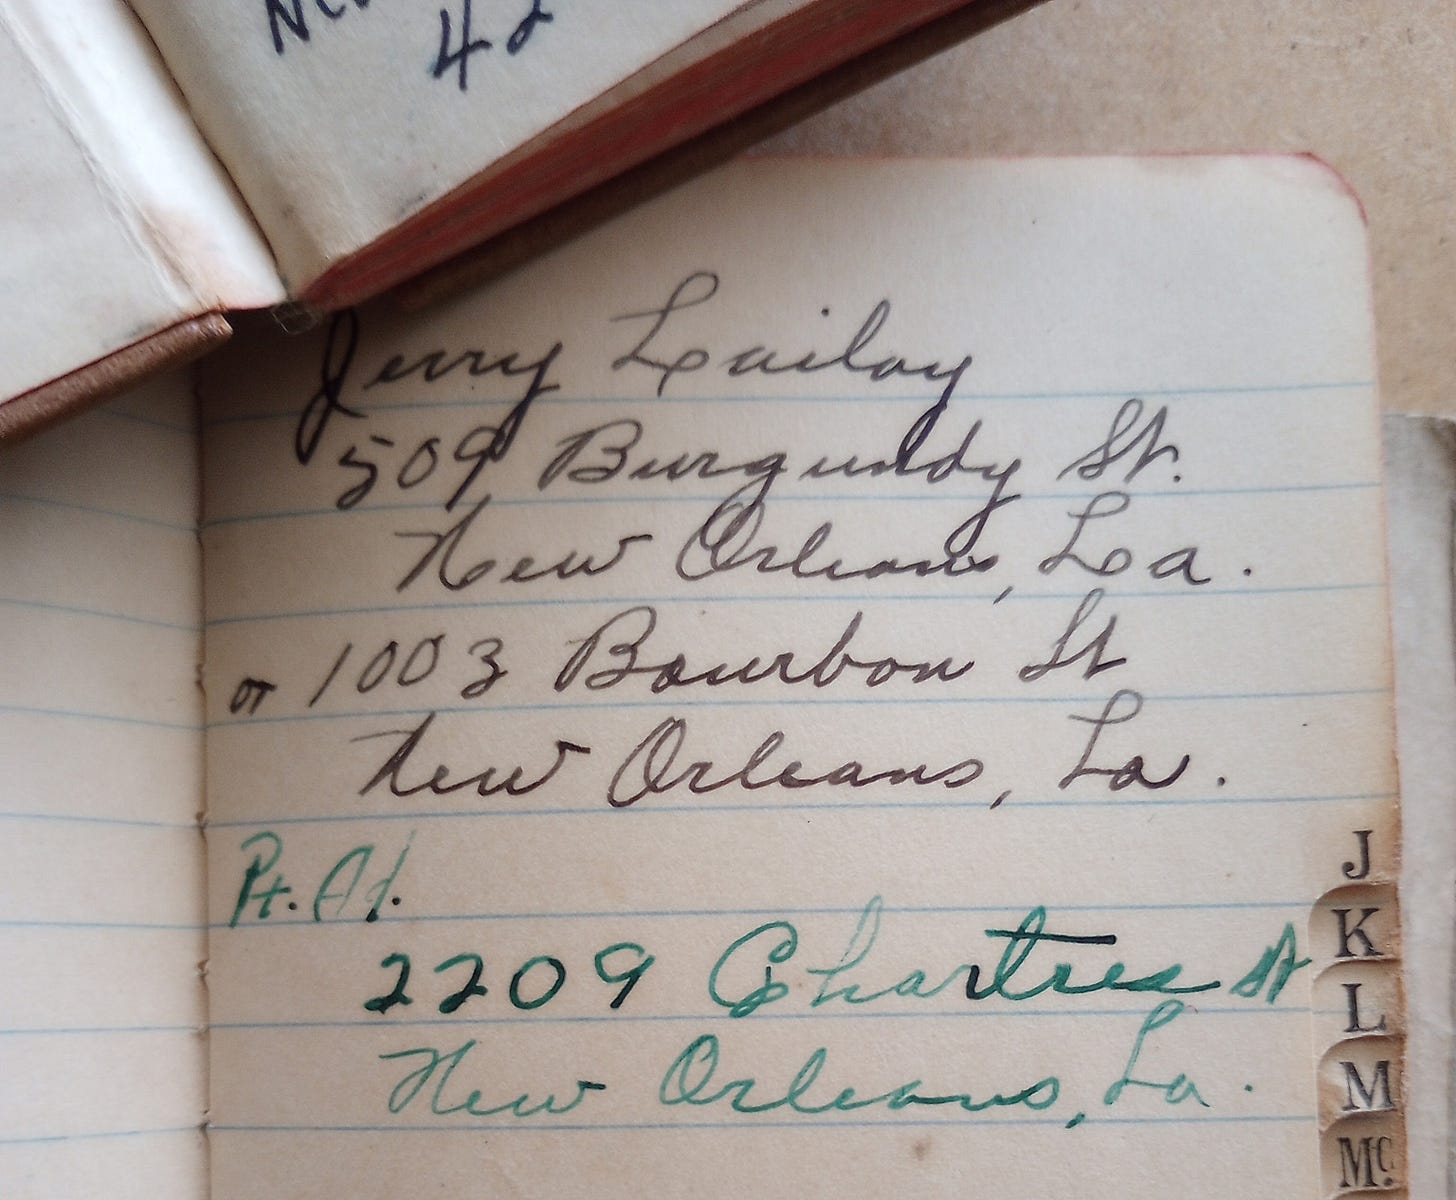 42
Jerry Lailay
509 Burgundy St.
New Orleans, La.
or 1003 Bourbon St
New Orleans, La.
Pt. Ad.
2209 Chartres St
New Orleans, La.
J
K
L
M
Mc.